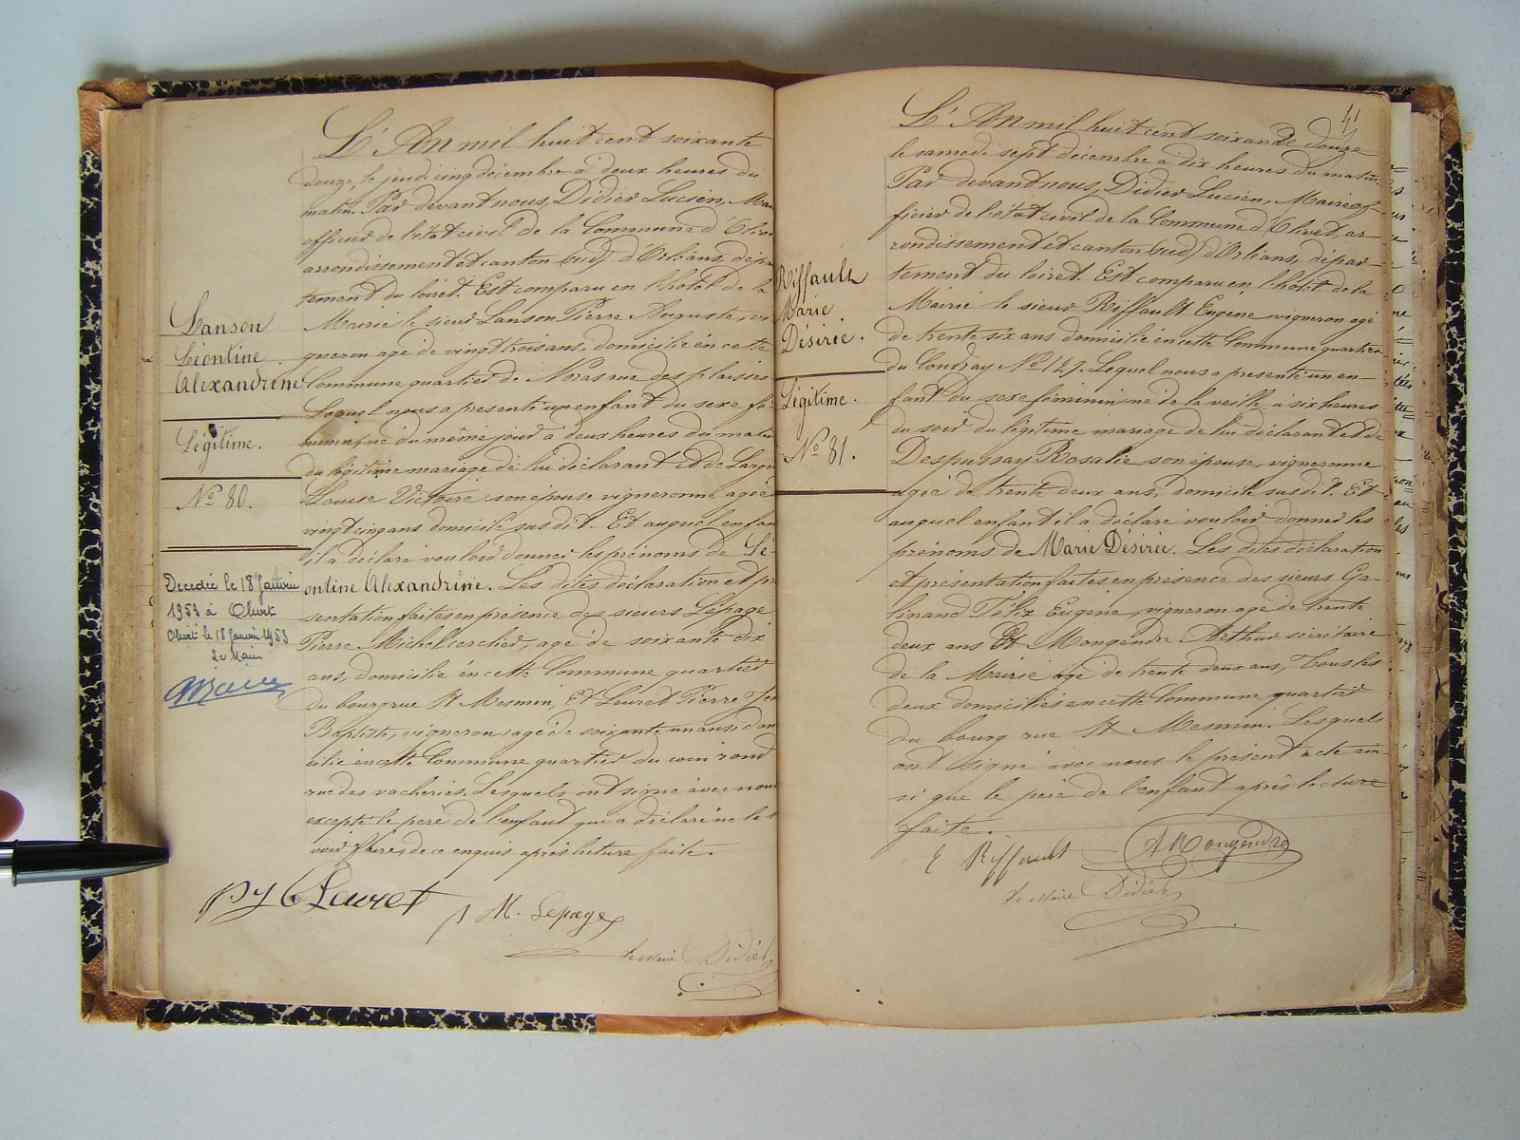 Lanson
Léontine
Alexandrine
Légitime.
No 80.
Decedée le 18 Janvier
1953 à Olivet
Olivet le 18 Janvier 1953
Le Maire
L'An mil huit cent soixante
douze, le jeudi cinq décembre à deux heures du
matin. Par devant nous, Didier Lucien, Maire
officier de l'état civil de la Commune d'Olivet
arrondissement et canton (sud) d'Orléans, dépar
tement du loiret. Est comparu en l'hotel de la
Mairie le sieur Lanson Pierre Auguste, vi
gneron agé de vingt trois ans, domicilié en cette
Commune quartier de Noras rue des plaisirs
Lequel nous a présenté un enfant du sexe fé
minin né du même jour à deux heures du matin
du légitime mariage de lui déclarant et de
Louise Victoire son épouse vigneronne agée
vingt cinq ans domicilié susdit. Et auquel enfant
il a déclaré vouloir donner les prénoms de Lé-
ontine Alexandrine. Les dites déclaration et pré
sentation faites en présence des sieurs Lepage
Pierre Michel, agé de soixante dix
ans, domicilié en cette Commune quartier
du bourg rue St Mesmin, Et Leuret Pierre Jean
Baptiste, vigneron agé de soixante un ans, dom
icilié en cette Commune quartier du coin rond
rue des vacheries. Lesquels ont signé avec nous
excepté le père de l'enfant qui a déclaré ne le
voir faire, de ce enquis après lecture faite.
Leuret
M. Lepage
Le Maire Didier
41
Riffault
Marie
Désirée.
Légitime.
No 81.
L'An mil huit cent soixante douze
le samedi sept décembre à dix heures du matin
Par devant nous, Didier Lucien, Maire of
ficier de l'état civil de la Commune d'Olivet, ar-
rondissement et canton (sud) d'Orléans, dépar-
tement du loiret. Est comparu en l'hotel de la
Mairie le sieur Riffault Eugène vigneron agé
de trente six ans domicilié en cette Commune quartier
du Coudray No 129. Lequel nous a présenté un en-
fant du sexe féminin né de la veille à six heures
du soir du légitime mariage de lui déclarant et de
Despussay Rosalie son épouse, vigneronne
agée de trente deux ans, domicilié susdit. Et
auquel enfant il a déclaré vouloir donner les
prénoms de Marie Désirée. Les dites déclaration
et présentation faites en présence des sieurs Ga-
linand Félix Eugène, vigneron agé de trente
deux ans Et Mongendre Arthur sécrétaire
de la Mairie agé de trente deux ans, Tous les
deux domiciliés en cette Commune quartier
du bourg rue St Mesmin. Lesquels
ont signé avec nous le présent acte ain-
si que le père de l'enfant après lecture
faite.
E Riffault
A Mongendre
Le Maire Didier